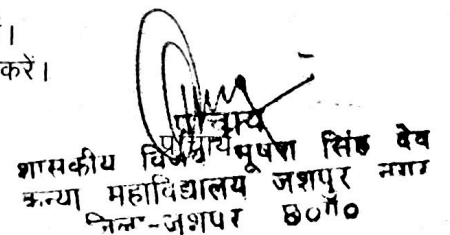 ।
करें।
प्राचार्य
शासकीय विजय भूषण सिंह देव
कन्या महाविद्यालय जशपुर नगर
जिला-जशपुर छ०ग०